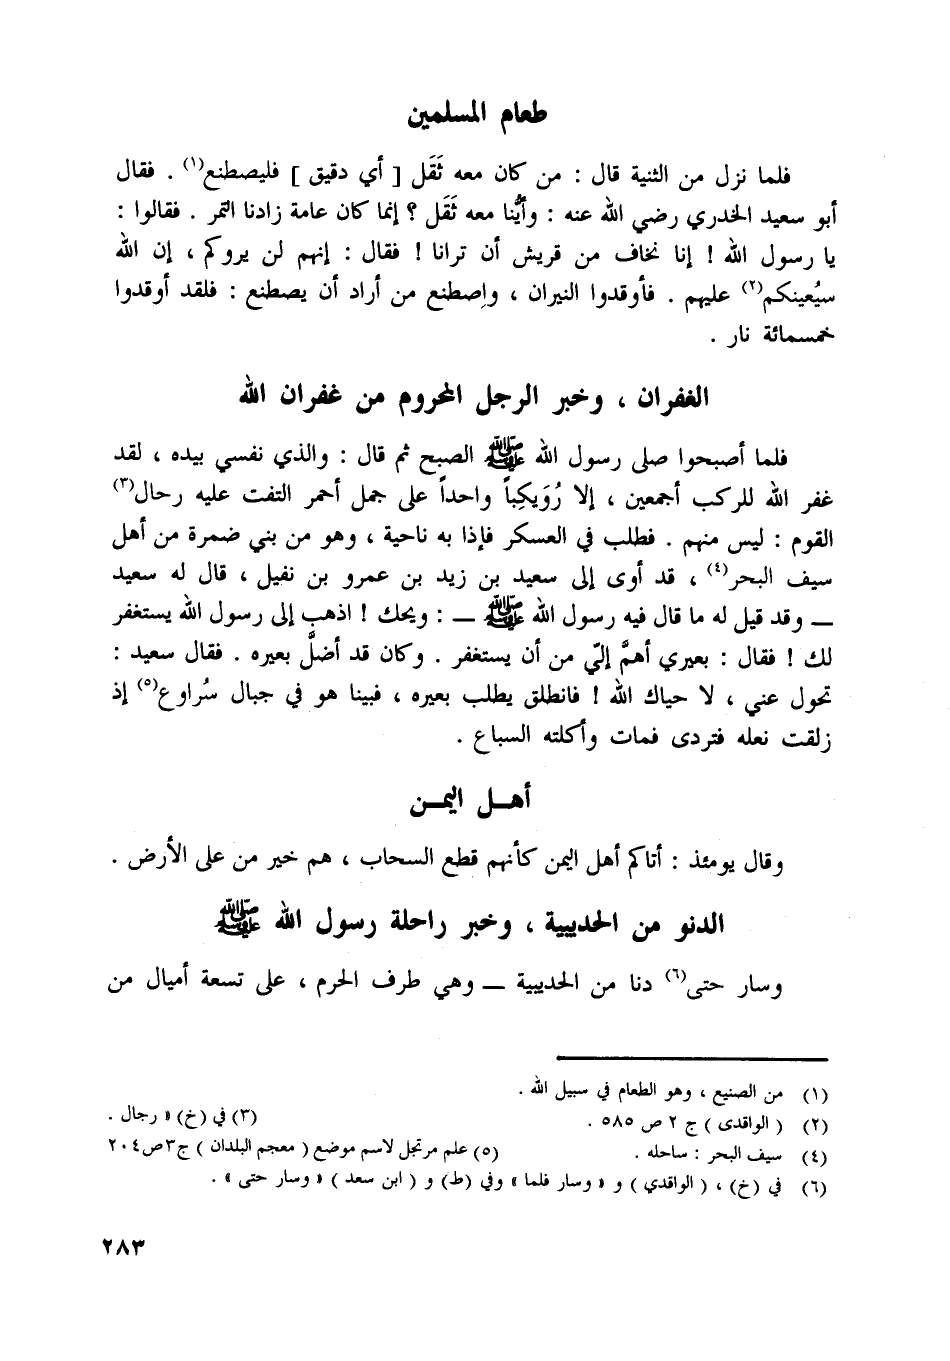 طعام المسلمين
فلما نزل من الثنية قال : من كان معه ثَقَل [ أي دقيق ] فليصطنع(١) . فقال
أبو سعيد الخدري رضي الله عنه : وأيُّنا معه ثَقَل ؟ إنما كان عامة زادنا التمر . فقالوا :
يا رسول الله ! إنا نخاف من قريش أن ترانا ! فقال : إنهم لن يروكم ، إن الله
سيُعينكم(٢) عليهم . فأوقدوا النيران ، واصطنع من أراد أن يصطنع : فلقد أوقدوا
خمسمائة نار .
الغفران ، وخبر الرجل المحروم من غفران الله
فلما أصبحوا صلى رسول الله ﷺ الصبح ثم قال : والذي نفسي بيده ، لقد
غفر الله للركب أجمعين ، إلا رُوَيكِباً واحداً على جمل أحمر التفت عليه رحال(٣)
القوم : ليس منهم . فطلب في العسكر فإذا به ناحية ، وهو من بني ضمرة من أهل
سيف البحر(٤) ، قد أوى إلى سعيد بن زيد بن عمرو بن نفيل ، قال له سعيد
— وقد قيل له ما قال فيه رسول الله ﷺ — : ويحك ! اذهب إلى رسول الله يستغفر
لك ! فقال : بعيري أهمَّ إليّ من أن يستغفر . وكان قد أضلَّ بعيره . فقال سعيد :
تحول عني ، لا حياك الله ! فانطلق يطلب بعيره ، فبينا هو في جبال سُراوع(٥) إذ
زلقت نعله فتردى فمات وأكلته السباع .
أهــل اليمــن
وقال يومئذ : أتاكم أهل اليمن كأنهم قطع السحاب ، هم خير من على الأرض .
الدنو من الحديبية ، وخبر راحلة رسول الله ﷺ
وسار حتى(٦) دنا من الحديبية — وهي طرف الحرم ، على تسعة أميال من
(١) من الصنيع ، وهو الطعام في سبيل الله .
(٢) ( الواقدى ) ج ٢ ص ٥٨٥ . (٣) في (خ) « رجال .
(٤) سيف البحر : ساحله . (٥) علم مرتجل لاسم موضع ( معجم البلدان ) ج٣ص٢٠٤
(٦) في (خ) ، ( الواقدي ) و « وسار فلما » وفي (ط) و ( ابن سعد ) « وسار حتى » .
٢٨٣